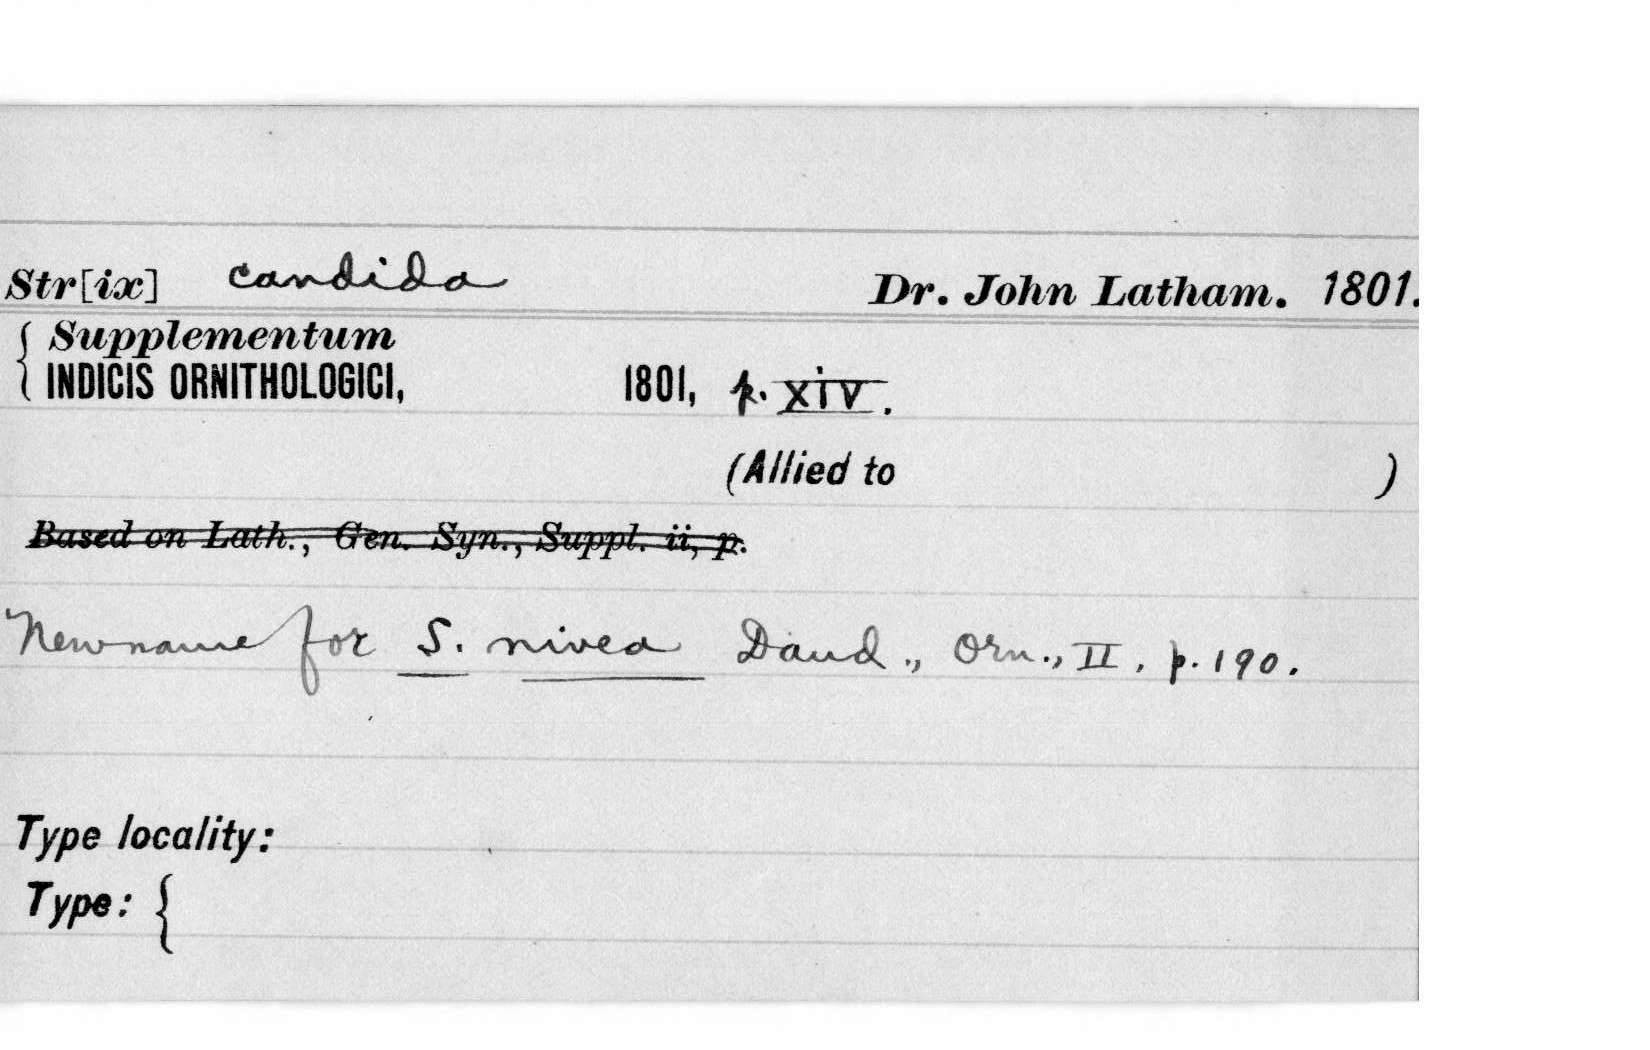 Str[ix] candida Dr. John Latham. 1801.
{ Supplementum
INDICIS ORNITHOLOGICI, 1801, p. xiv.
(Allied to )
Based on Lath., Gen. Syn., Suppl. ii, p.
New name for S. nivea Daud., Orn., II, p. 190.
Type locality:
Type: {